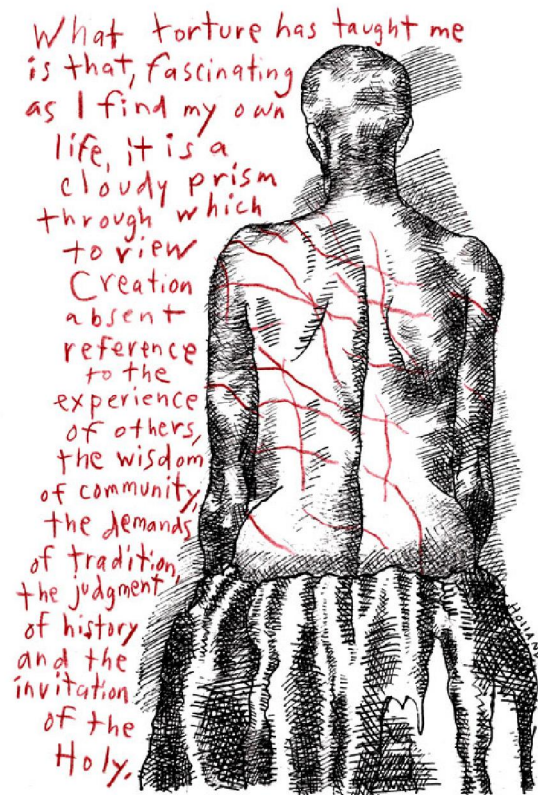 What torture has taught me
is that, fascinating
as I find my own
life, it is a
cloudy prism
through which
to view
Creation
absent
reference
to the
experience
of others,
the wisdom
of community,
the demands
of tradition,
the judgment
of history
and the
invitation
of the
Holy.